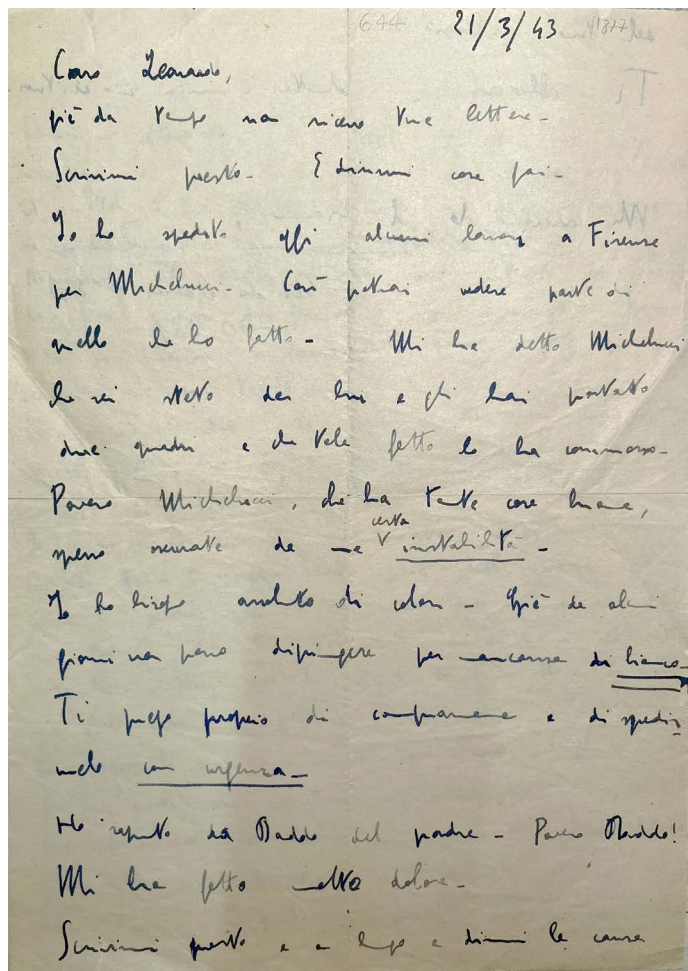 644 21/3/43 1377
Caro Leonardo,
già da tempo non ricevo tue lettere -
Scrivimi presto - E dimmi cosa fai -
Io ho spedito oggi alcuni lavori a Firenze
per Michelucci - Così potrai vedere parte di
quello che ho fatto - Mi ha detto Michelucci
che sei stato da lui e gli hai portato
due quadri e che tale fatto lo ha commosso -
Povero Michelucci, che ha tante cose buone,
spesso oscurate da una certa instabilità -
Io ho bisogno assoluto di colori - Già da alcuni
giorni non posso dipingere per mancanza di bianco -
Ti prego proprio di comprarmene e di spedir-
melo con urgenza -
Ho saputo da Baldo del padre - Povero Baldo!
Mi ha fatto molto dolore -
Scrivimi presto e a lungo e dimmi la causa